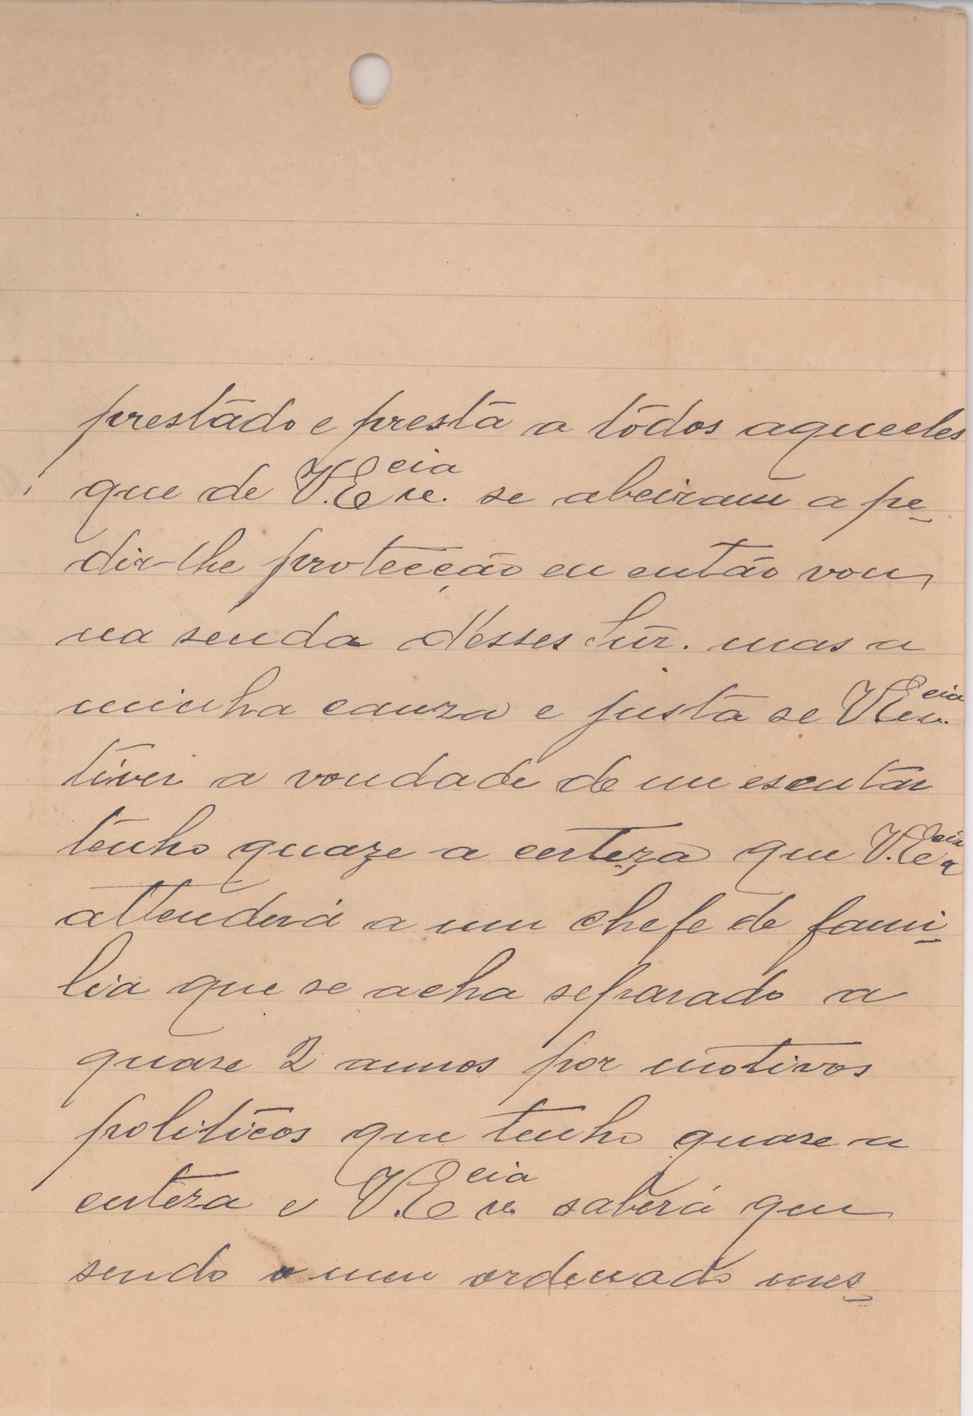 prestado e presta a tôdos aqueeles
que de V. Ex.cia se abeiram a pe-
dir-lhe protecção eu então vou
na senda d'esses Snr. mas a
minha cauza e justa se V Ex.cia
tiver a vondade de me escutar
tenho quaze a certeza que V. Ex.cia
attenderá a um chefe de fami-
lia que se acha separado a
quase 2 annos por motivos
politicos que tenho quase a
certeza e V. Ex.cia saberá que
sendo o meu ordenado mes-